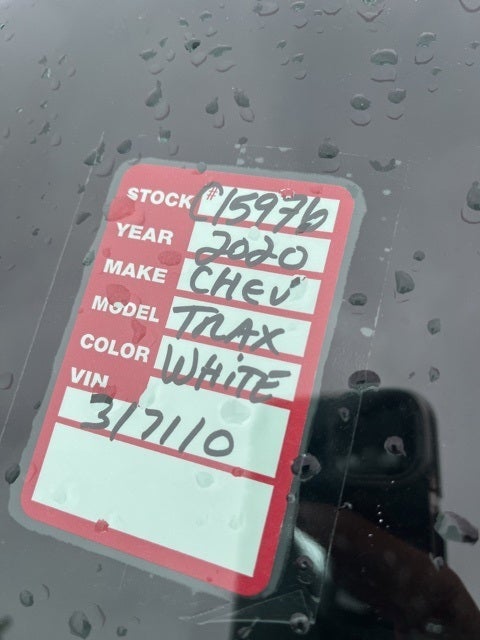 STOCK # C15976
YEAR 2020
MAKE CHEV
MODEL TRAX
COLOR WHITE
VIN
317110